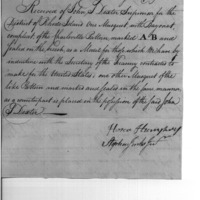 Received of John S. Dexter Supervisor for the
District of Rhode Island One Musquet with Bayonet,
compleat of the Charlevile Pattern, marked A B and
Sealed on the breech, as a Model for those which We have by
indenture with the Secretary of the Treasury contracted to
make for the United States, one other Musquet of the
like Pattern and marked and sealed in the same manner
as a counterpart is placed in the possession of the said John
S. Dexter
Stephen Jenks Junr